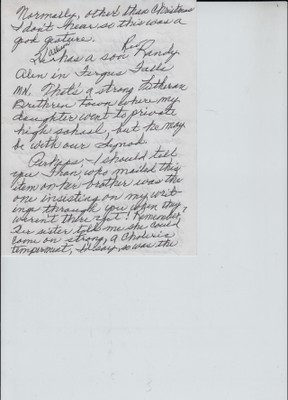 Normally, other than Christmas
I don't hear so this was a
good gesture.
has a son Randy
in Fergus Falls
MN. That's a strong Lutheran
Brethren town where my
daughter went to private
high school, but he may
be with our Synod.
Perhaps, I should tell
you
who mailed this
item on her brother was the
one insisting on my writ-
ings through you when they
weren't there yet! Remember,
sister told me she could
come on strong, a Choleric
temperment, I'd say, so was the